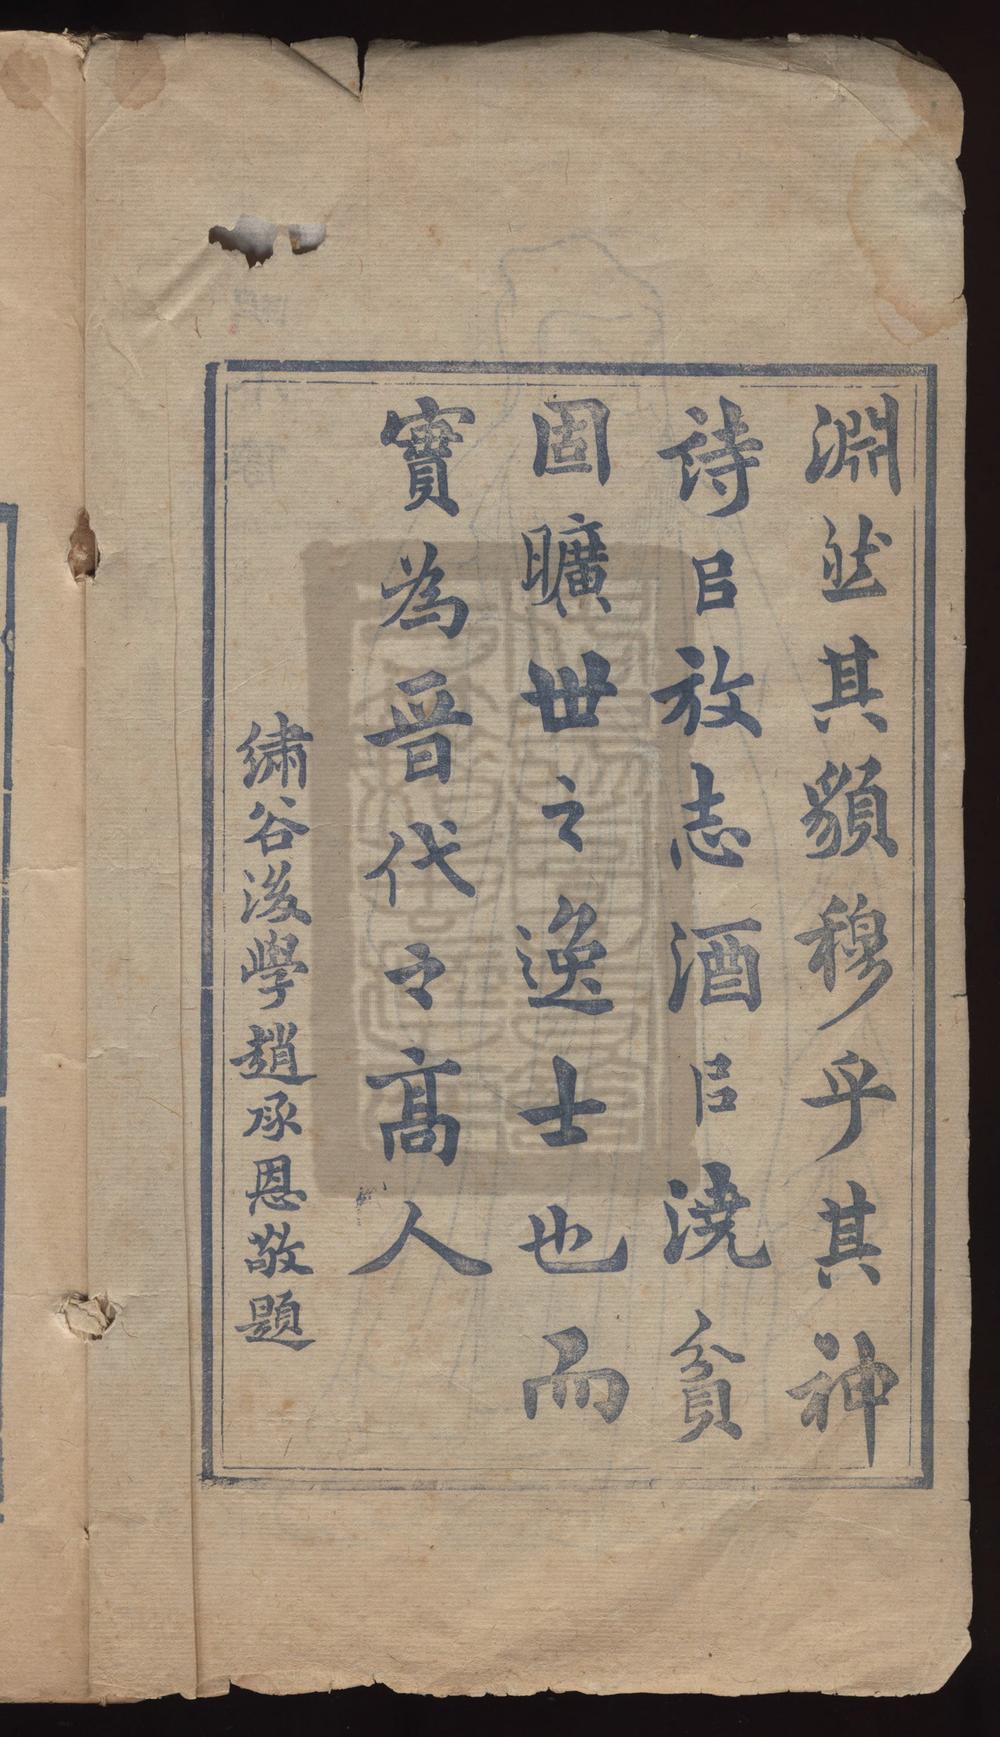 淵然其貌穆乎其神
詩㠯放志酒㠯澆貧
固曠世之逸士也而
實為晉代之高人
繡谷後學趙承恩敬題